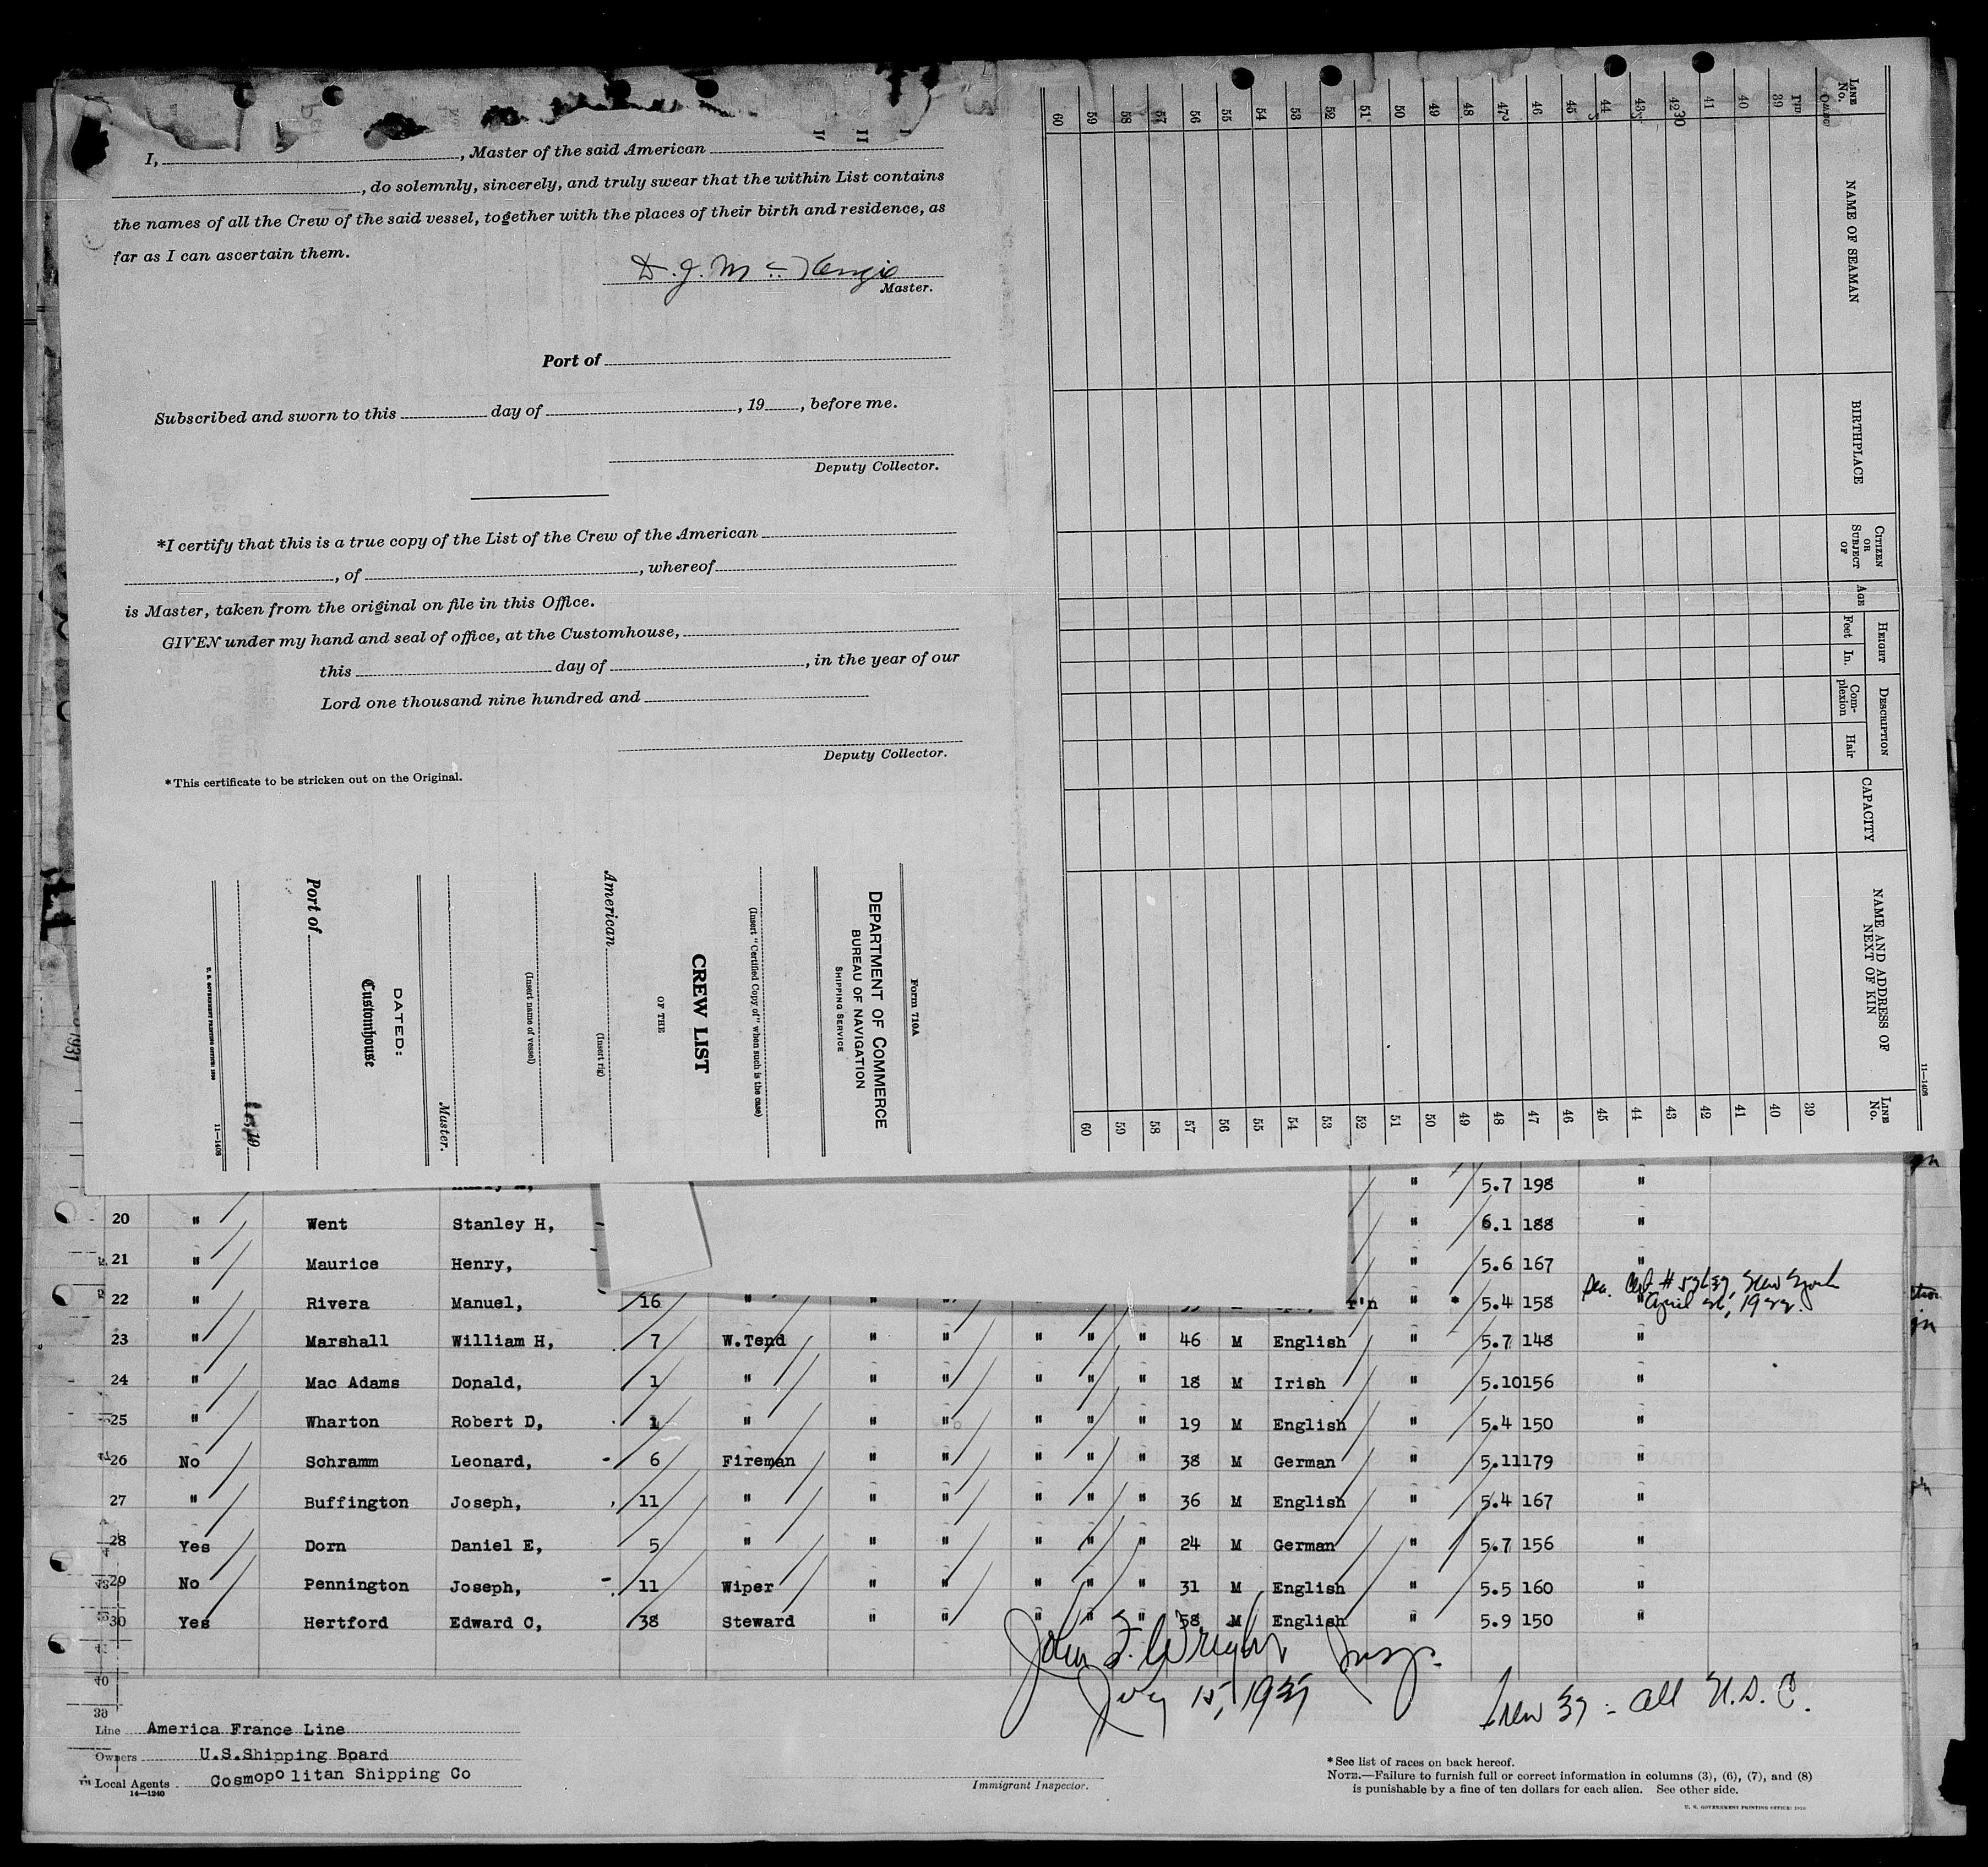 I, , Master of the said American
, do solemnly, sincerely, and truly swear that the within List contains
the names of all the Crew of the said vessel, together with the places of their birth and residence, as
far as I can ascertain them.
Master.
Port of
Subscribed and sworn to this day of , 19 , before me.
Deputy Collector.
*I certify that this is a true copy of the List of the Crew of the American
, of , whereof
is Master, taken from the original on file in this Office.
GIVEN under my hand and seal of office, at the Customhouse,
this day of , in the year of our
Lord one thousand nine hundred and
Deputy Collector.
*This certificate to be stricken out on the Original.
Form 710A
DEPARTMENT OF COMMERCE
BUREAU OF NAVIGATION
SHIPPING SERVICE
(Insert "Certified Copy of" when such is the case)
CREW LIST
OF THE
American
(Insert rig)
(Insert name of vessel)
Master.
DATED:
Customhouse
Port of
, 19
11—1408
11—1408
LINE No.
NAME OF SEAMAN
BIRTHPLACE
CITIZEN OR SUBJECT OF
AGE
HEIGHT
Feet In.
DESCRIPTION
Complexion Hair
CAPACITY
NAME AND ADDRESS OF NEXT OF KIN
LINE No.
39 39
40 40
41 41
42 42
43 43
44 44
45 45
46 46
47 47
48 48
49 49
50 50
51 51
52 52
53 53
54 54
55 55
56 56
57 57
58 58
59 59
60 60
" 5.7 198 "
20 " Went Stanley H, " 6.1 188 "
21 " Maurice Henry, " 5.6 167 "
22 " Rivera Manuel, 16 " " " r'n " * 5.4 158 "
April 26, 19
23 " Marshall William H, 7 W.Tend " " " " " 46 M English " 5.7 148 "
24 " Mac Adams Donald, 1 " " " " " " 18 M Irish " 5.10 156 "
25 " Wharton Robert D, 1 " " " " " " 19 M English " 5.4 150 "
26 No Schramm Leonard, 6 Fireman " " " " " 38 M German " 5.11 179 "
27 " Buffington Joseph, 11 " " " " " " 36 M English " 5.4 167 "
28 Yes Dorn Daniel E, 5 " " " " " " 24 M German " 5.7 156 "
29 No Pennington Joseph, 11 Wiper " " " " " 31 M English " 5.5 160 "
30 Yes Hertford Edward C, 38 Steward " " " " " 58 M English " 5.9 150 "
John F. Wright Insp.
July 15, 1937
Crew 37 - all U.S.C.
Line America France Line
Owners U.S.Shipping Board
Local Agents Cosmopolitan Shipping Co
14—1240
Immigrant Inspector.
*See list of races on back hereof.
NOTE.—Failure to furnish full or correct information in columns (3), (6), (7), and (8)
is punishable by a fine of ten dollars for each alien. See other side.